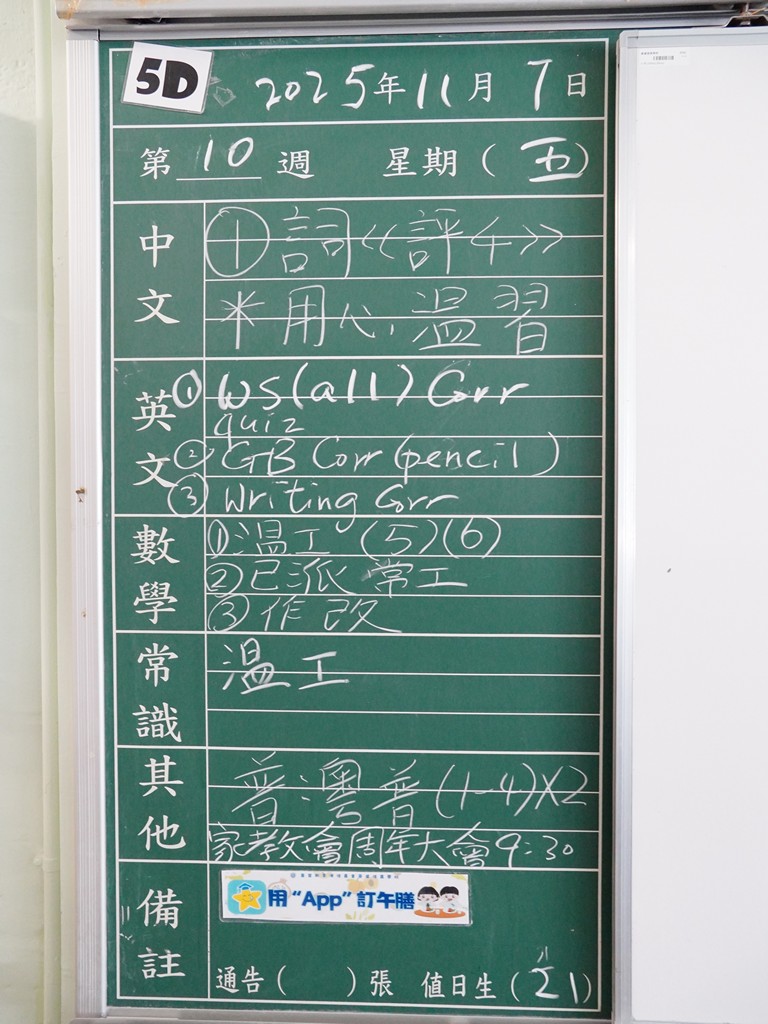 5D
2025年11月7日
第10週 星期(五)
中文
十詞《評4》
*用心温習
英文
① WS(all) Corr
quiz
② GB Corr (pencil)
③ Writing Corr
數學
①温工 (5)(6)
②已派常工
③作改
常識
温工
其他
普:粵普(1-4)X2
家教會周年大會9:30
備註
用“App”訂午膳
通告( )張 值日生(21)